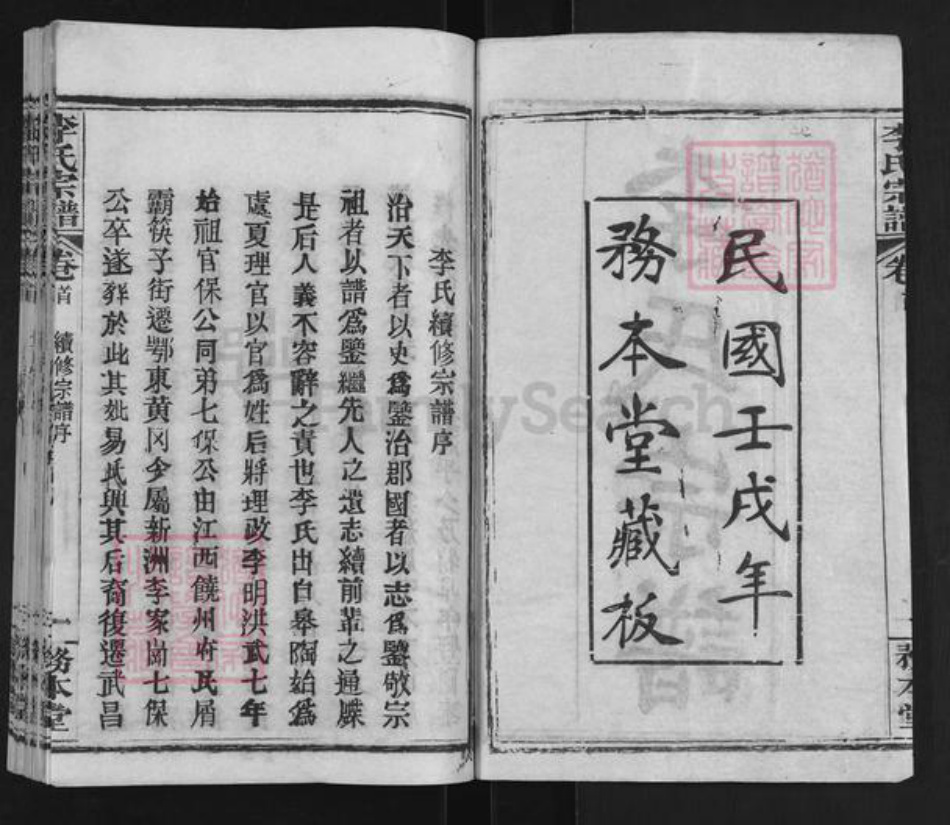 李氏宗譜
卷
務本堂
民國壬戌年
務本堂藏板
李氏續修宗譜序
治天下者以史爲鑒治郡國者以志爲鑒敬宗
祖者以譜爲鑒繼先人之遺志續前輩之通牒
是后人義不容辭之責也李氏出自皋陶始爲
虞夏理官以官爲姓后將理政李明洪武七年
始祖官保公同弟七保公由江西饒州府民屑
霸筷子街遷鄂東黄冈今屬新洲李家崗七保
公卒遂葬於此其妣易氏與其后裔復遷武昌
李氏宗譜
卷首
續修宗譜序
一
務本堂
FamilySearch